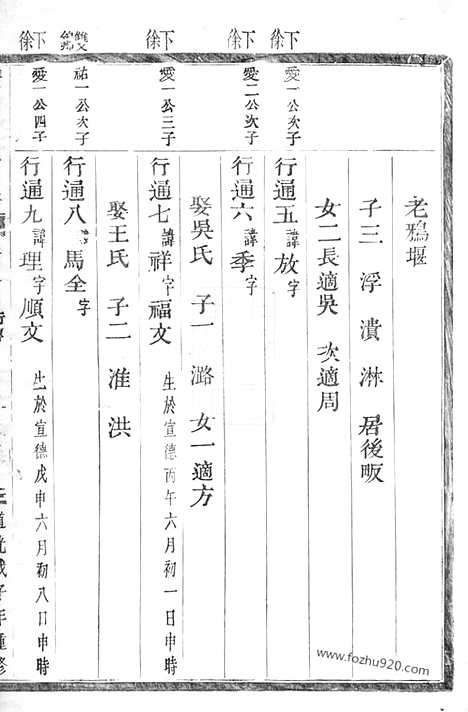 老鴉堰
子三 浮 潰 淋 居後畈
女二長適吳 次適周
下徐
愛一公次子
行通五諱放字
下徐
愛二公次子
行通六諱季字
娶吳氏 子一 潞 女一適方
下徐
愛一公三子
行通七諱祥字福文 生於宣德丙午六月初一日申時
娶王氏 子二 准 洪
祐一公次子
行通八諱馬全字
下徐
愛一公四子
行通九諱理字順文 生於宣德戊申六月初八日申時
道光戊子年重修
www.fozhu920.com